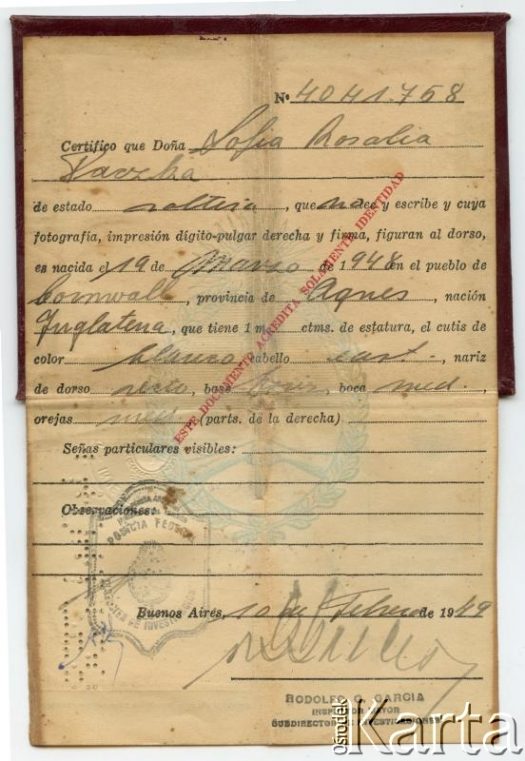 Nº 4041.758
Certifico que Doña Sofia Rosalia
de estado soltera, que no lee y escribe y cuya
fotografía, impresión dígito-pulgar derecha y firma, figuran al dorso,
es nacida el 19 de Marzo de 1948 en el pueblo de
Cornwall, provincia de Agnes, nación
Inglaterra, que tiene 1 m. ctms. de estatura, el cutis de
color blanco cabello cast., nariz
de dorso recto, base hor, boca med.
orejas med (parts. de la derecha)
Señas particulares visibles:
Observaciones:
ESTE DOCUMENTO ACREDITA SOLAMENTE IDENTIDAD
POLICIA FEDERAL
Buenos Aires, 10 de Febrero de 1949
RODOLFO G. GARCIA
INSPECTOR MAYOR
SUBDIRECTOR DE INVESTIGACIONES
ośrodek
Karta